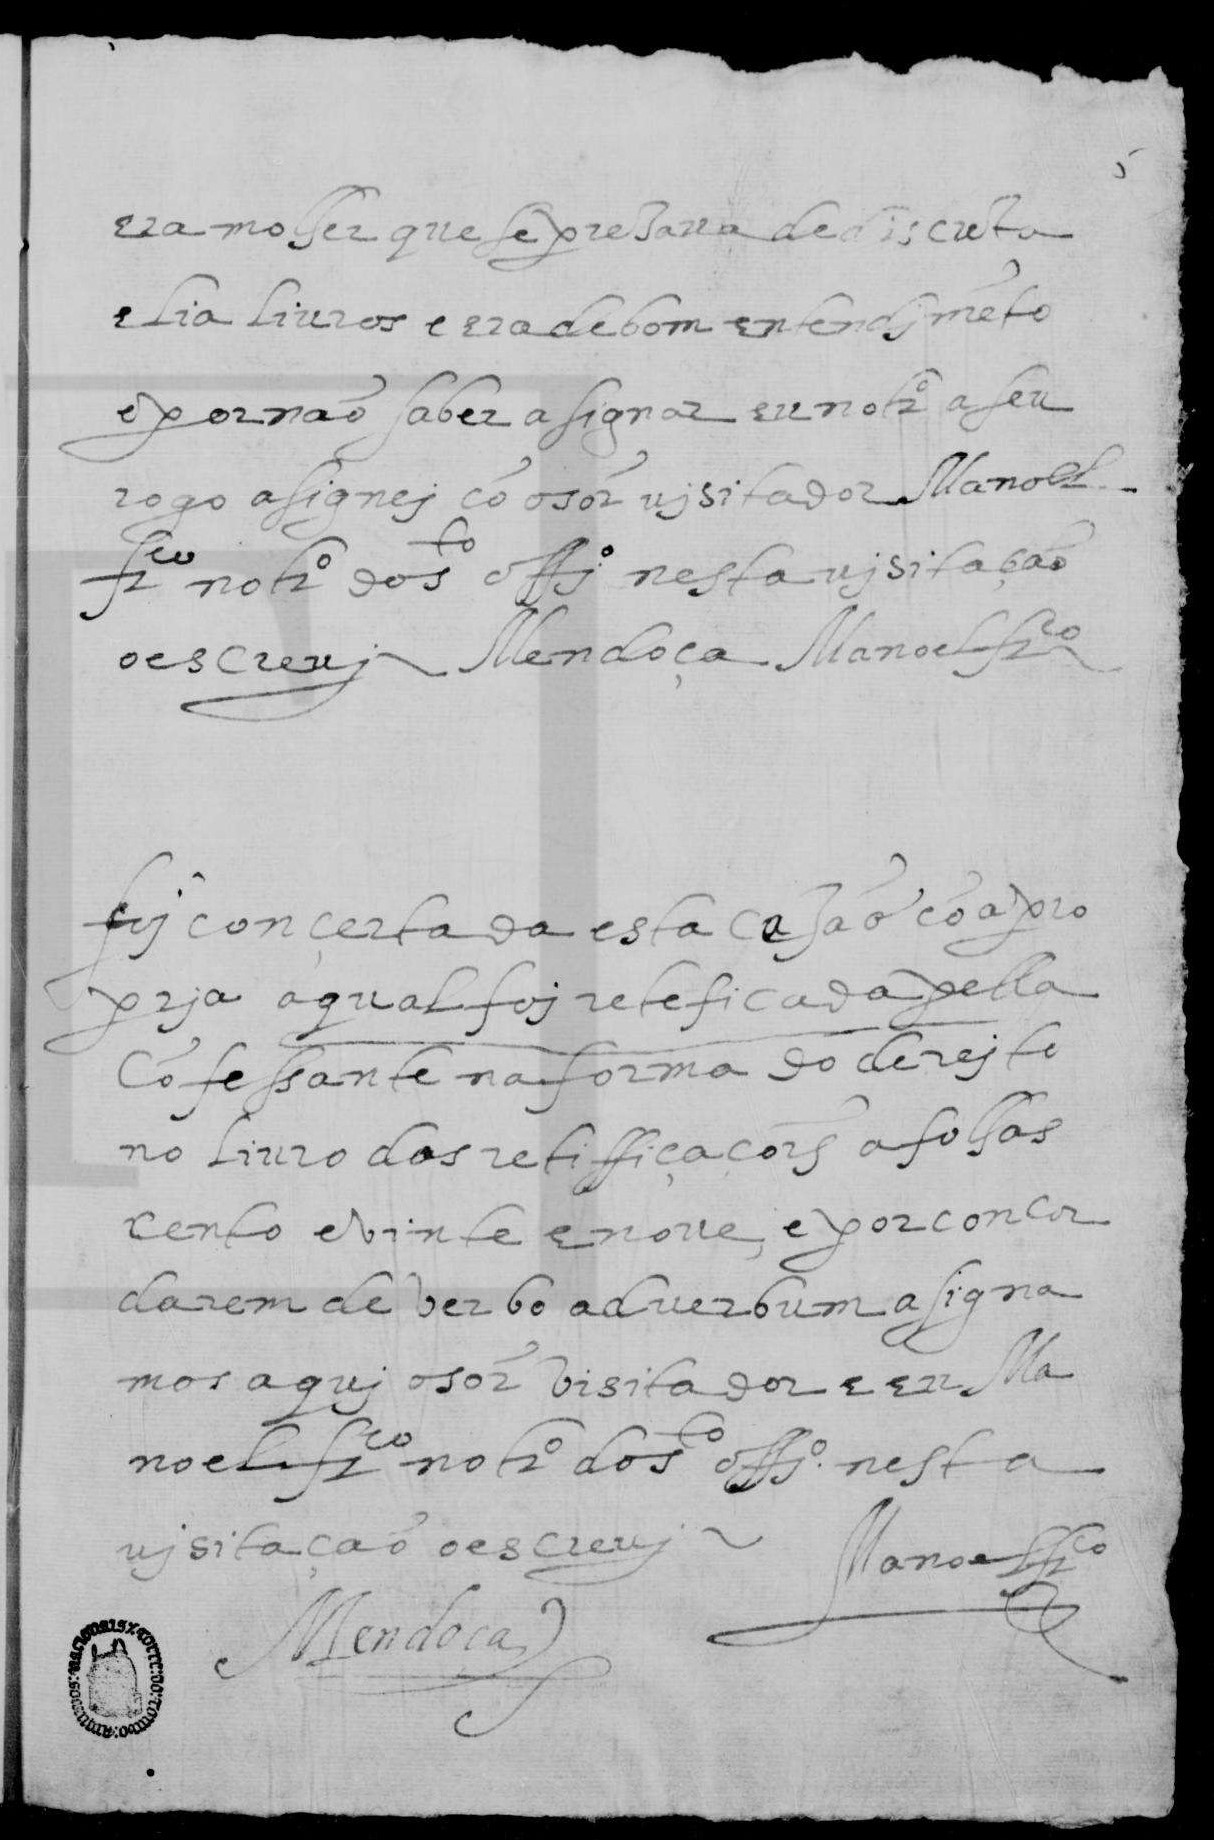 5
era molher que se prezaua de discreta
e lia liuros e era de bom entendjmẽto
e por naõ saber asignar eu notr.º a seu
rogo asignej cõ o sõr ujsitador Manoel
frco notr.º do sto offj.º nesta ujsitaçaõ
o escreuj Mendoça Manoel frco
foj conçertada esta cõ a pro
prja a qual foj reteficada pella
Cõfessante na forma do derejto
no liuro das retiffiçaçõis a folhas
cento e vinte e noue, e por concor
darem de verbo aduerbum asigna
mos aquj o sõr visitador e eu Ma
noel frco notr.º do sto offj.º nesta
ujsitaçaõ o escreuj
Manoel frco
Mendoça
ARQUIVOS NACIONAIS TORRE DO TOMBO